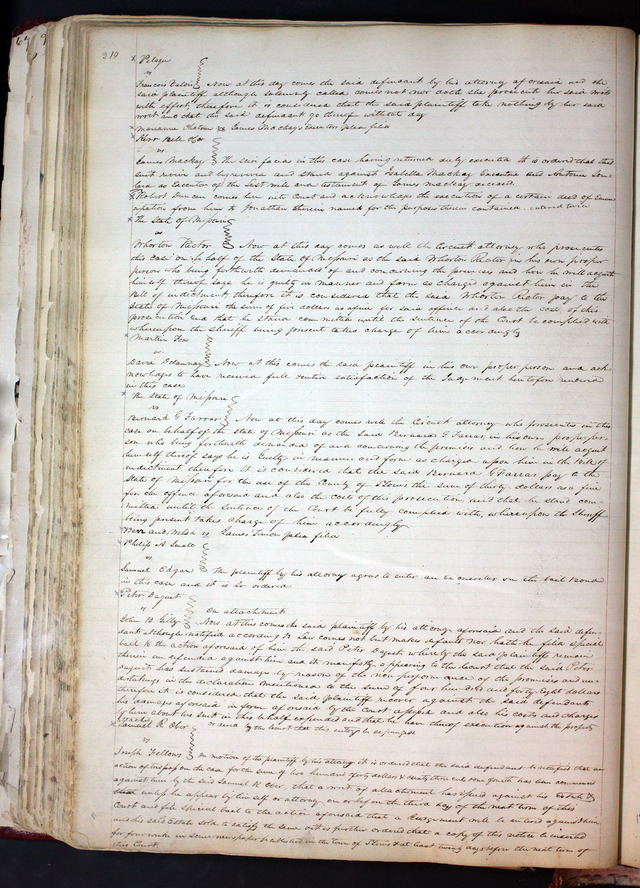 310
Pelagie
vs
Francois Valois Now at this day comes the said defendant by his attorney aforesaid and the
said plaintiff although solemnly called comes not nor doth she prosecute her said writ
with effect, therefore it is considered that the said plaintiff take nothing by her said
writ and that the said defendant go thereof without day
Marianne vs James Mackay's Executors plea filed
Kerr Bell &Co
vs
James Mackay The scire facias in this case having returned duly executed it is ordered that this
suit revive and be revived and stand against Isabella Mackay Executrix and Antoine Sou
lard as Executor of the last will and testament of James Mackay deceased
Robert Duncan comes here into Court and acknowledges the execution of a certain deed of Eman
cipation from him to Jonathan therein named for the purposes therein contained
The State of Missouri
vs
Whorton Rector Now at this day comes as well the Circuit attorney who prosecutes
this case on behalf of the State of Missouri as the said Whorton Rector in his own proper
person who being forthwith demanded of and concerning the premises and how he will acquit
himself thereof says he is guilty in manner and form as charged against him in the
Bill of indictment therefore it is considered that the said Whorton Rector pay to the
State of Missouri the sum of five dollars as a fine for said offence and also the cost of this
prosecution and that he stand committed until the sentence of the Court be complied with
whereupon the Sheriff being present takes charge of him accordingly
Martin Fox
vs
David Delaunay Now at this comes the said plaintiff in his own proper person and ack
nowledges to have received full entire satisfaction of the Judgment heretofore rendered
in this case
The State of Missouri
vs
Bernard G Farrar Now at this day comes well the Circuit attorney who prosecutes in this
case on behalf of the State of Missouri as the said Bernard G Farrar in his own proper per-
son who being forthwith demanded of and concerning the premises and how he will acquit
himself thereof says he is Guilty in manner and form as charged upon him in the Bill of
indictment therefore it is considered that the said Bernard G Farrar pay to the
State of Missouri for the use of the County of St Louis the sum of thirty dollars as a fine
for the offence aforesaid and also the cost of this prosecution and that he stand com-
mitted until the sentence of the Court be fully complied with, whereupon the Sheriff
being present takes charge of him accordingly
and Welsh vs James Timon plea filed
Philip A Small
vs
Samuel Edgar The plaintiff by his attorney agrees to enter an exonerator on the bail bond
in this case and it is so ordered
Peter Daguet
vs On attachment
John B Gilly Now at this comes the said plaintiff by his attorney aforesaid and the said defen-
dant although notified according to law comes not but makes default nor hath he filed special
bail to the action aforesaid of him the said Peter Daguet whereby the said plaintiff remains
therein undefended against him and it manifestly appearing to the Court that the said Peter
Daguet has sustained damages by reason of the non performance of the promises and un-
dertakings in the declaration mentioned to the sum of four hundred and forty eight dollars
therefore it is considered that the said plaintiff recover against the said defendants
his damages aforesaid in form aforesaid by the Court assessed and also his costs and charges
by him about his suit in this behalf expended and that he have thereof execution against the property
attached and by the Court that this entry be
Samuel R Ober
vs
Joseph Fellows On motion of the plaintiff by his attorney it is ordered that the said defendant be notified that an
action of trespass on the case for the sum of five hundred forty dollars & seventy three cents one fourth has been commenced
against him by the said Samuel R Ober, that a writ of attachment has issued against his Estate &
that unless he appear by himself or attorney on or before the third day of the next term of this
Court and file special bail to the action aforesaid that a Judgement will be entered against him
and his said Estate sold to satisfy the same and it is further ordered that a copy of this notice be inserted
for four weeks in some newspaper published in the town of St Louis & at least twenty days before the next term of
this Court